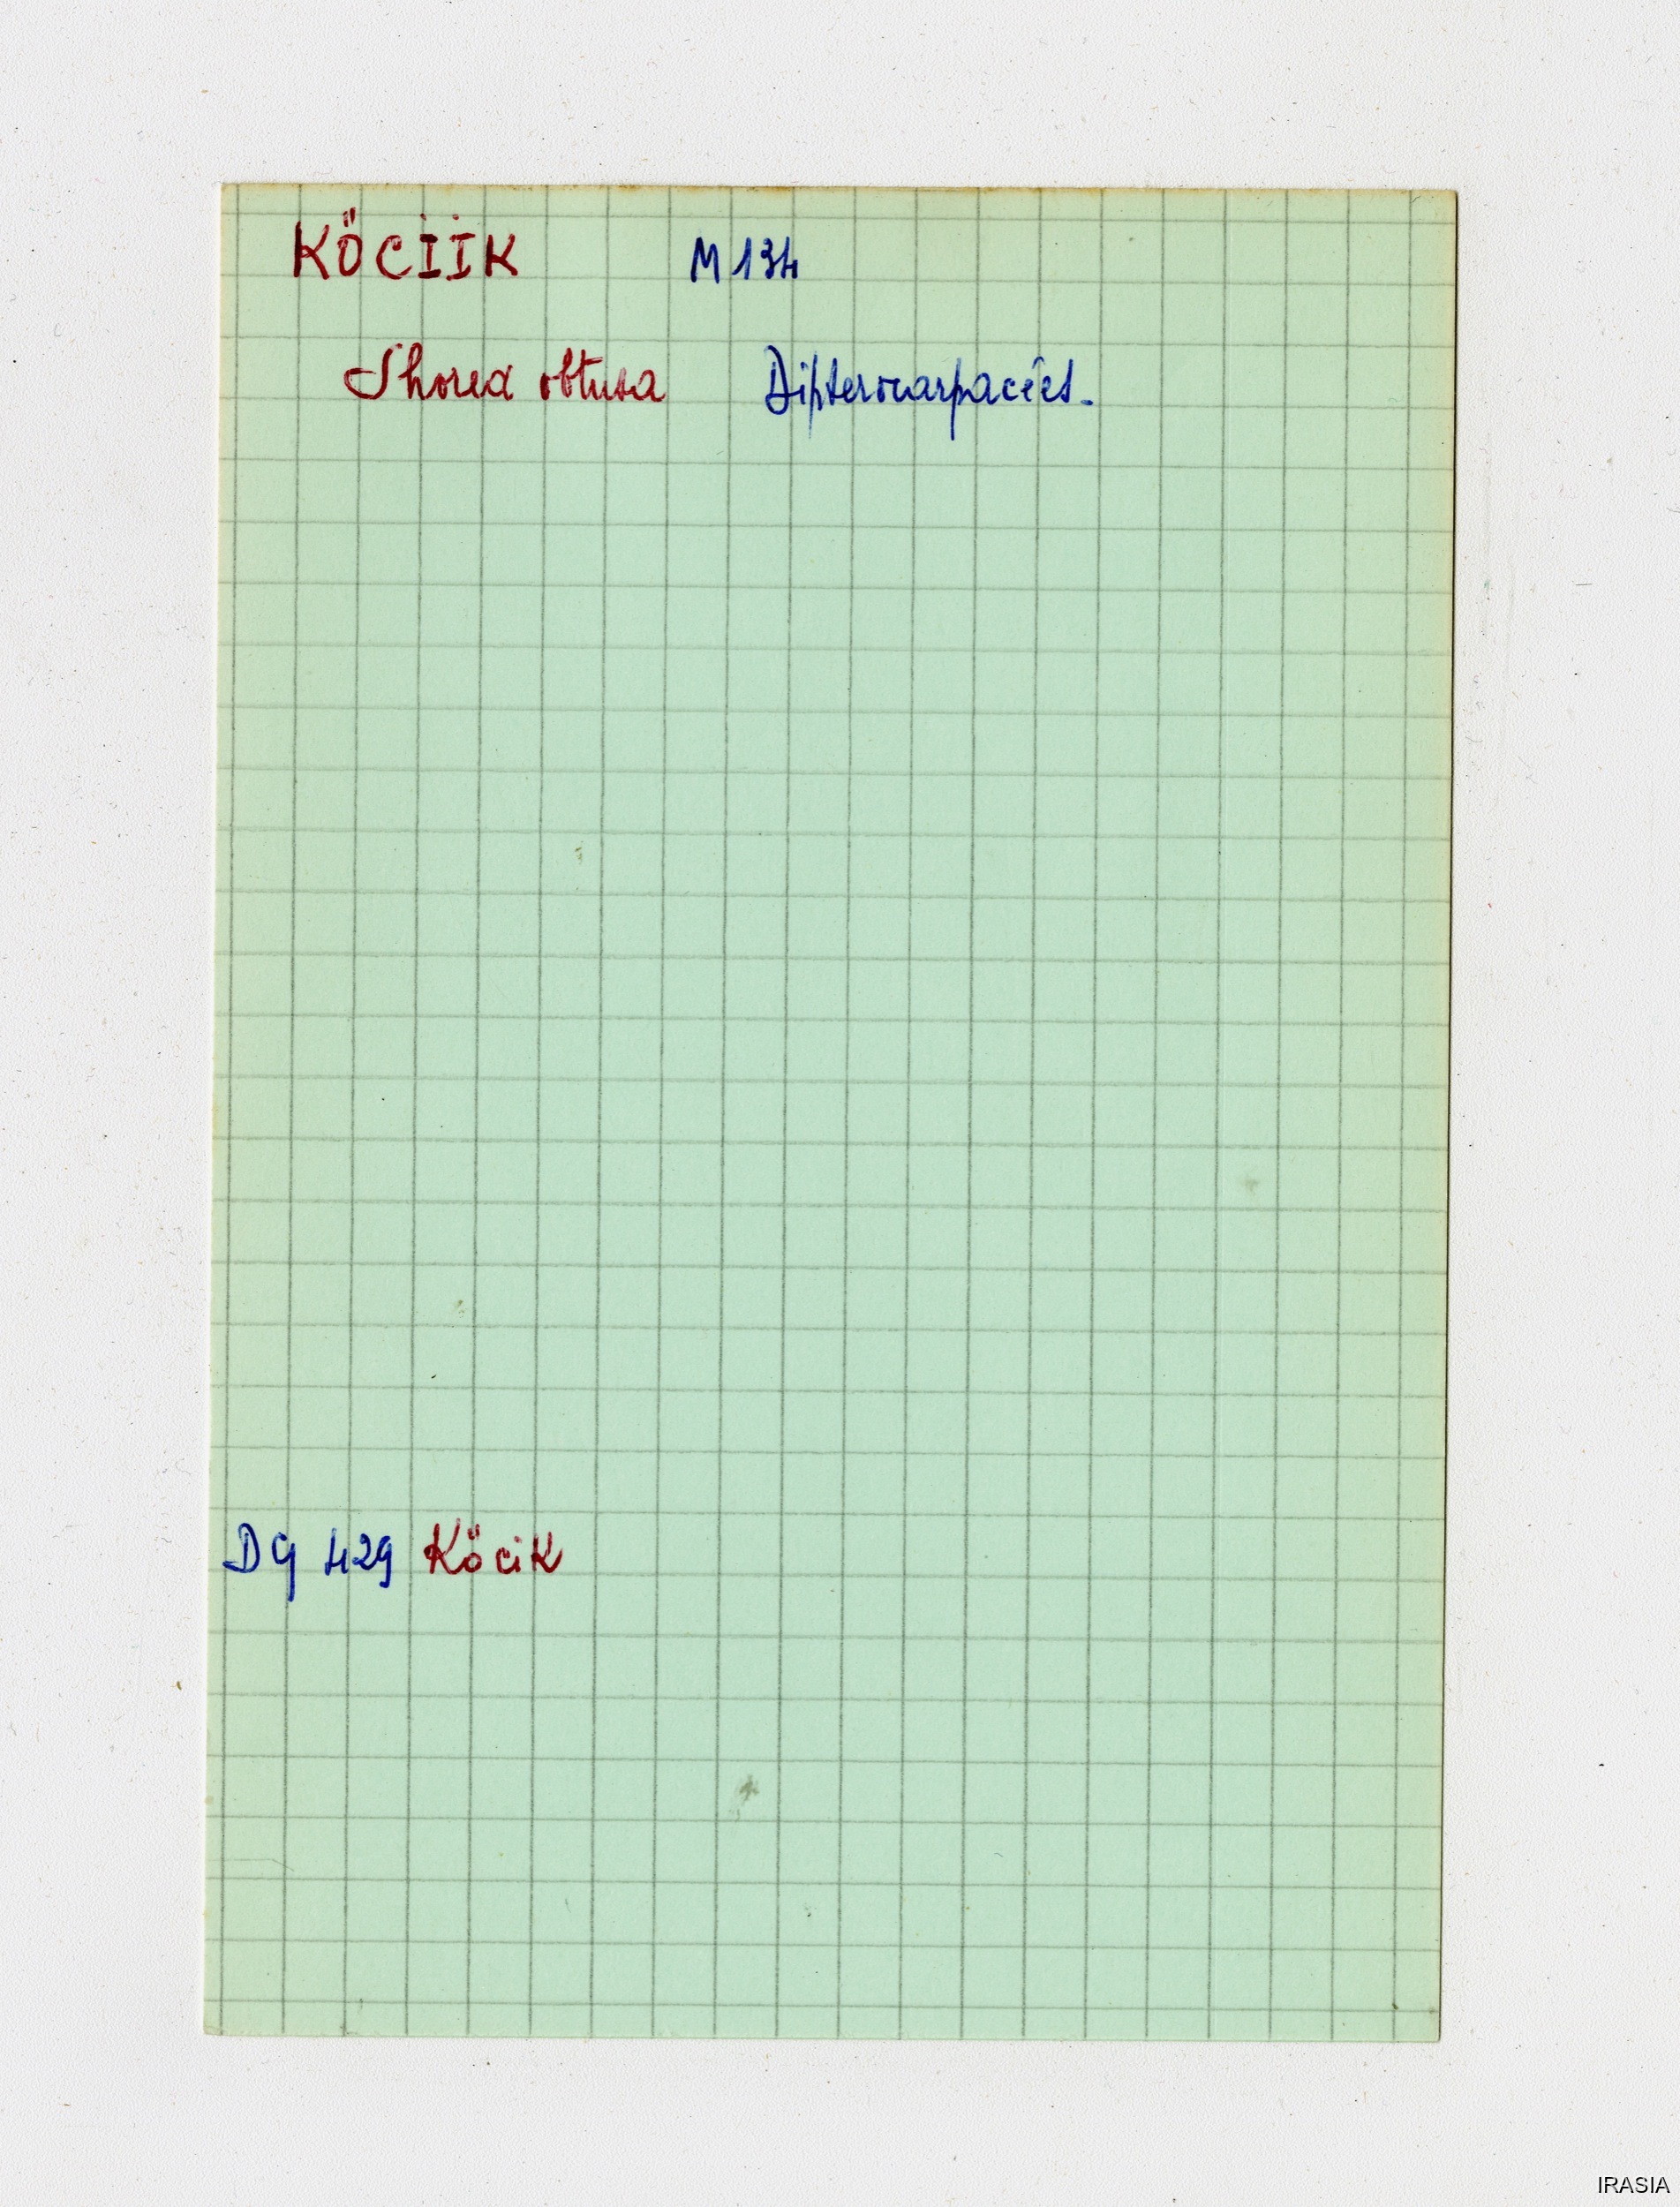 KÖCIIK M 134
Shorea obtusa Dipterocarpacées.
DG 429 Köcik
IRASIA